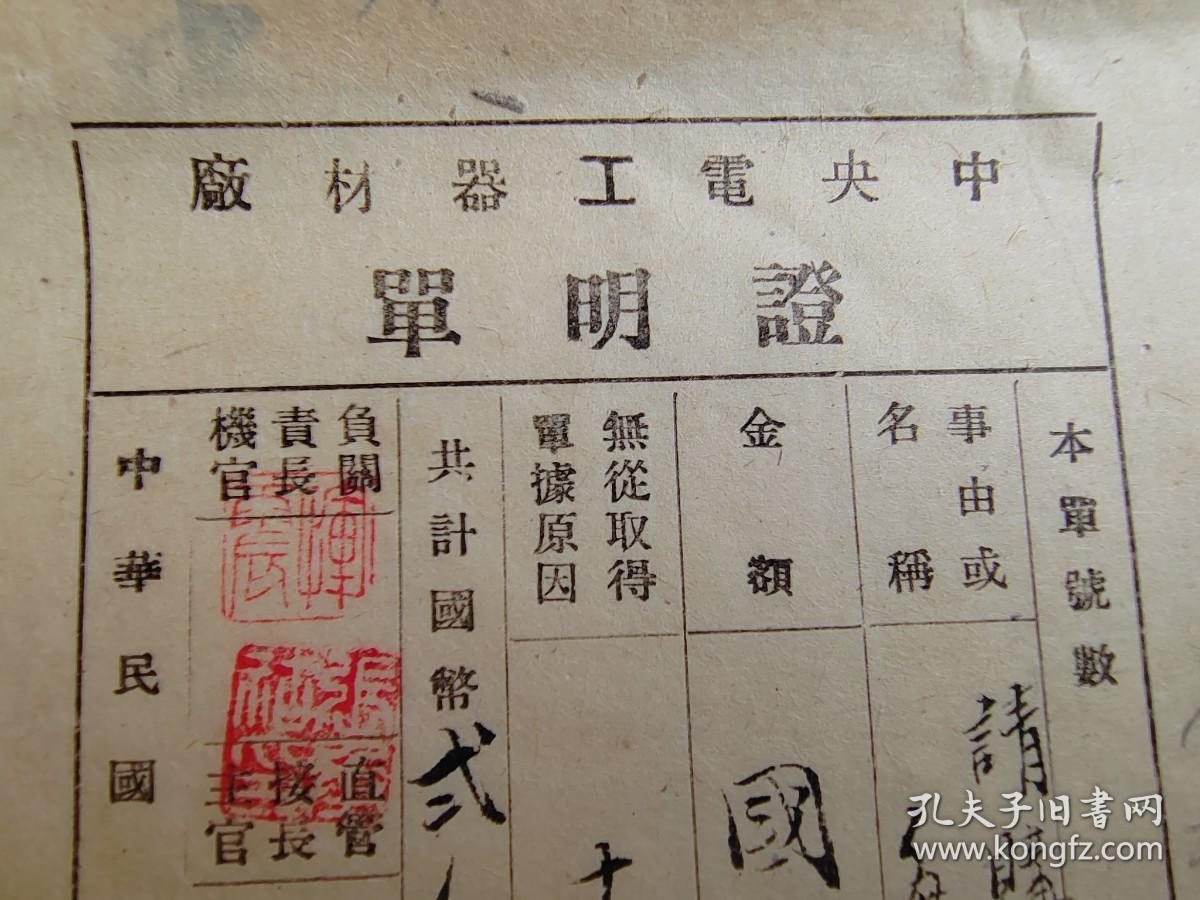 中央電工器材廠
證明單
本單號數
事由或
名稱
請
金額
國
無從取得
單據原因
十
共計國幣貳
負責機關長官
直接主管長官
中華民國
孔夫子旧书网
www.kongfz.com